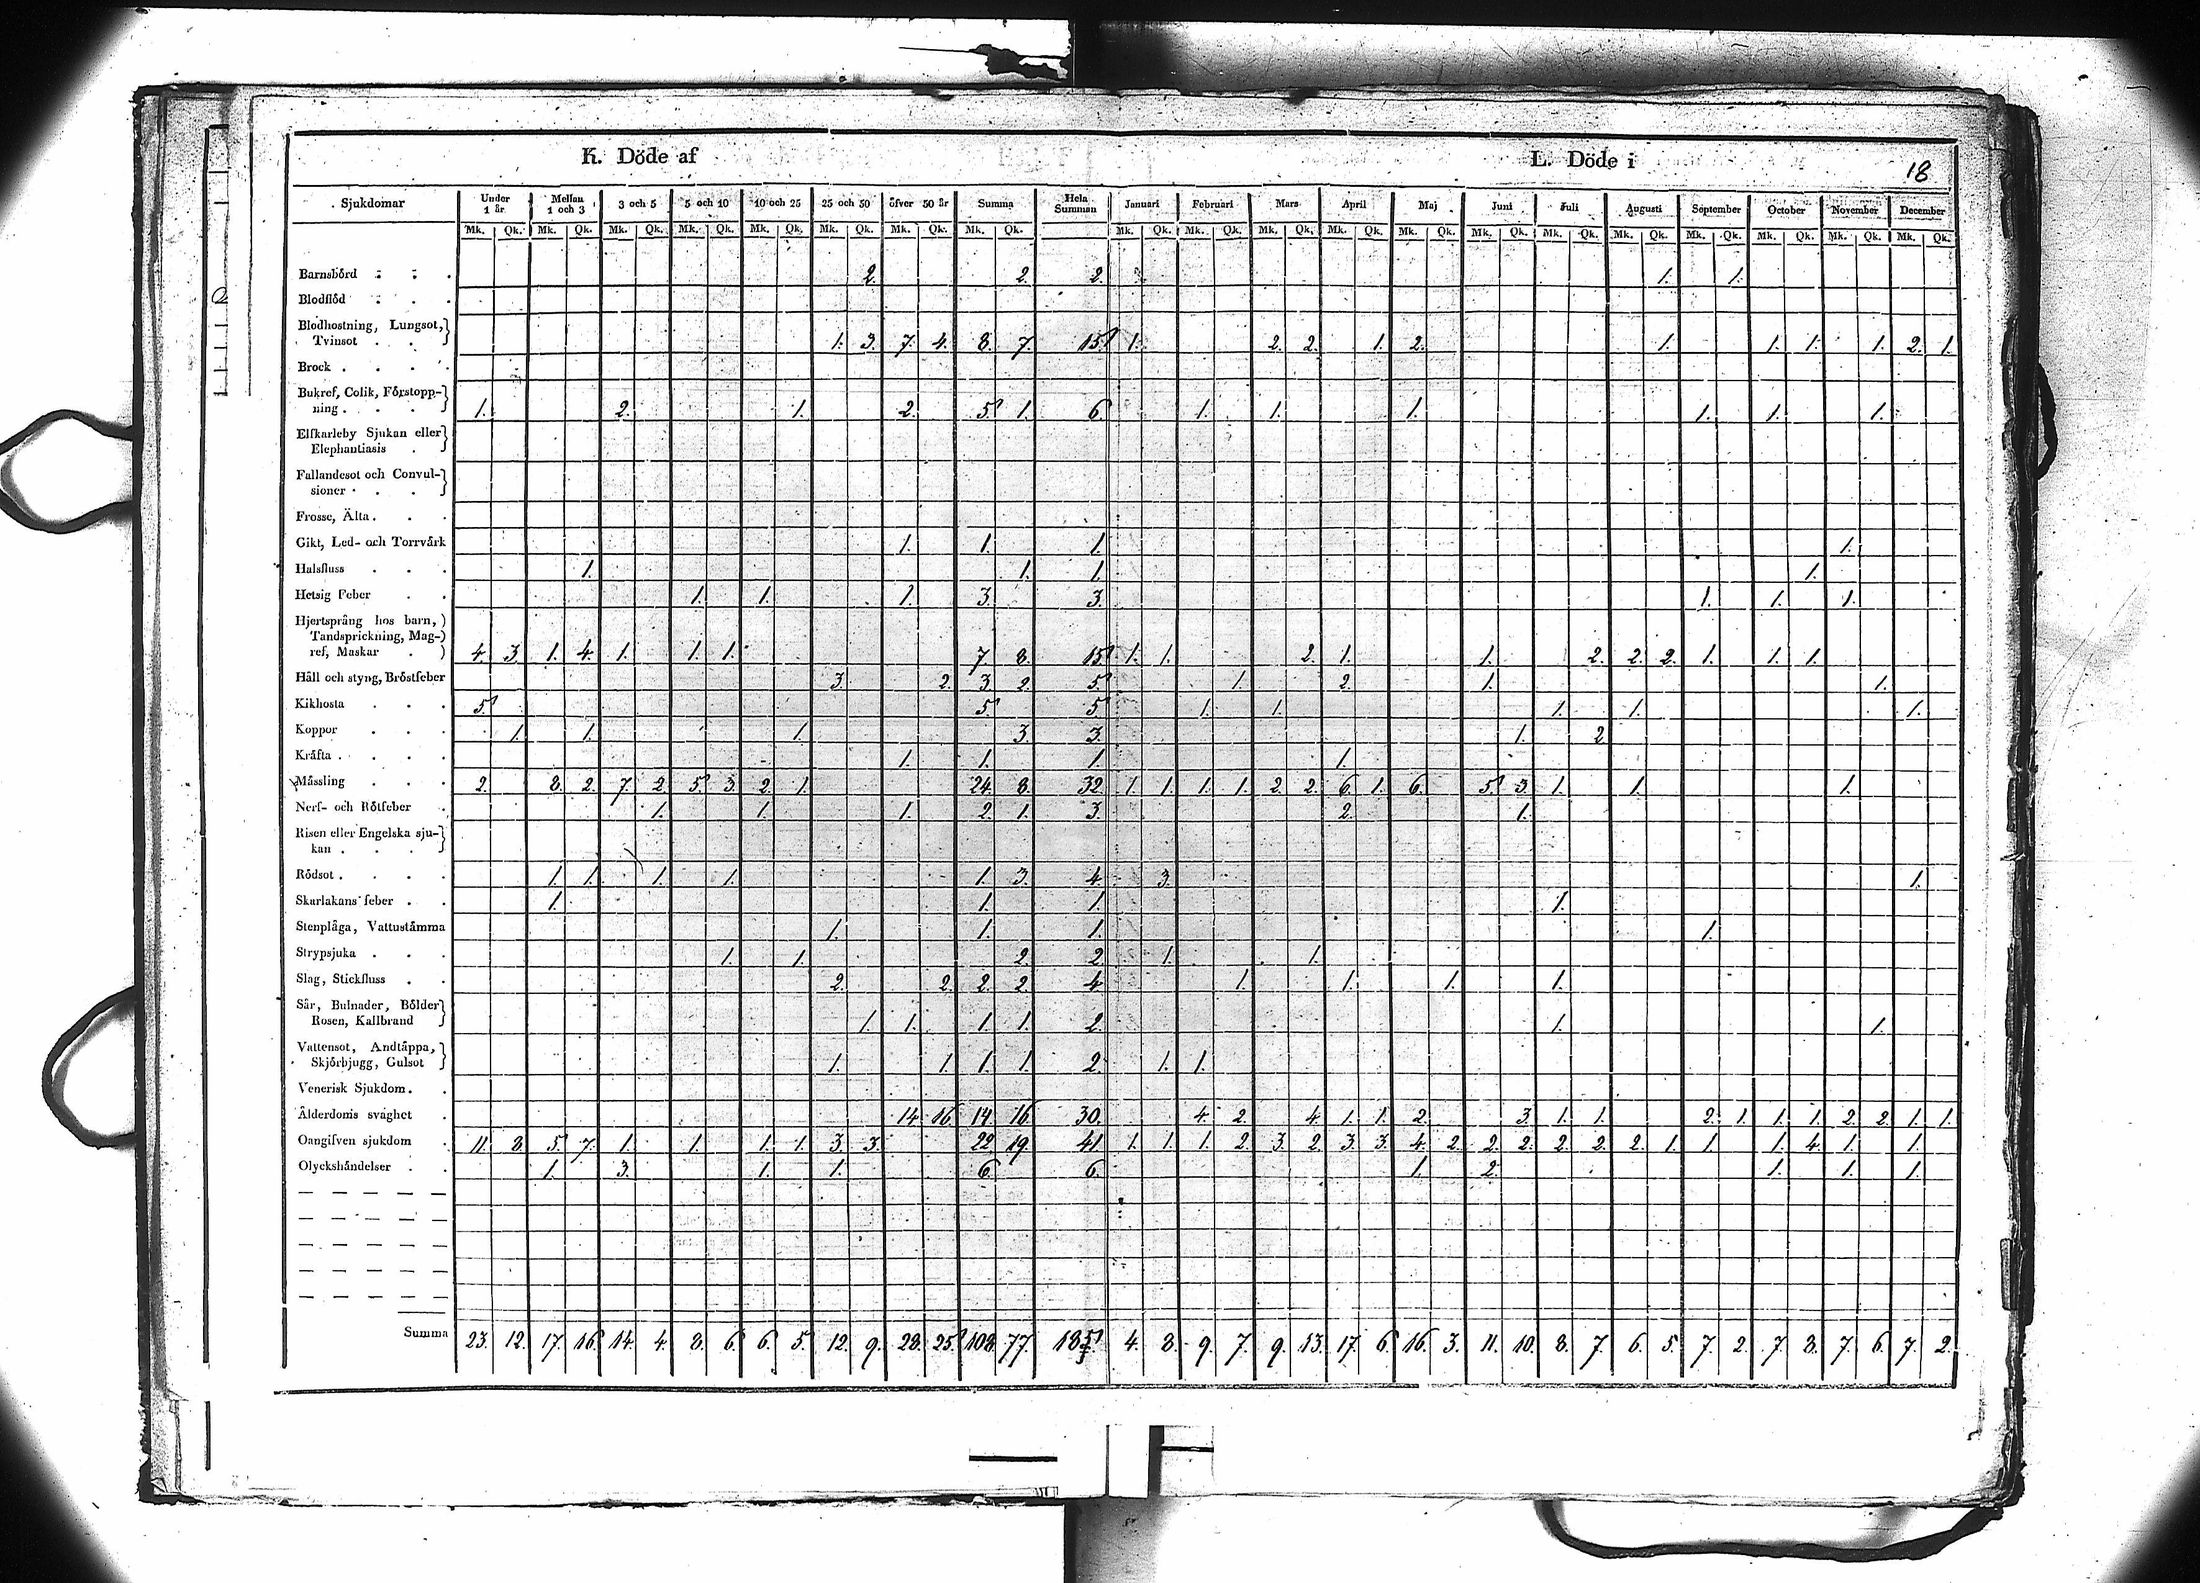 K. Döde af
L. Döde i
18
Sjukdomar Under 1 år Mellan 1 och 3 3 och 5 5 och 10 10 och 25 25 och 50 öfver 50 år Summa Hela Summan Januari Februari Mars April Maj Juni Juli Augusti September October November December
Mk. Qk. Mk. Qk. Mk. Qk. Mk. Qk. Mk. Qk. Mk. Qk. Mk. Qk. Mk. Qk. Mk. Qk. Mk. Qk. Mk. Qk. Mk. Qk. Mk. Qk. Mk. Qk. Mk. Qk. Mk. Qk. Mk. Qk. Mk. Qk. Mk. Qk. Mk. Qk.
Barnsbörd 2. 2. 2. 1. 1.
Blodflöd
Blodhostning, Lungsot,
Tvinsot 1. 3. 7. 4. 8. 7. 15. 1. 2. 2. 1. 2. 1. 1. 1. 1. 2. 1.
Brock
Bukref, Colik, Förstopp-
ning 1. 2. 1. 2. 5. 1. 6. 1. 1. 1. 1. 1. 1.
Elfkarleby Sjukan eller
Elephantiasis
Fallandesot och Convul-
sioner
Frosse, Älta
Gikt, Led- och Torrvårk 1. 1. 1. 1.
Halsfluss 1. 1. 1. 1.
Hetsig Feber 1. 1. 1. 3. 3. 1. 1. 1.
Hjertsprång hos barn,
Tandsprickning, Mag-
ref, Maskar 4. 3. 1. 4. 1. 1. 1. 7. 8. 15. 1. 1. 2. 1. 1. 2. 2. 2. 1. 1. 1.
Håll och styng, Bröstfeber 3. 2. 3. 2. 5. 1. 2. 1. 1.
Kikhosta 5. 5. 5. 1. 1. 1. 1. 1.
Koppor 1. 1. 1. 3. 3. 1. 2.
Kräfta 1. 1. 1. 1.
Mässling 2. 8. 2. 7. 2. 5. 3. 2. 1. 24. 8. 32. 1. 1. 1. 1. 2. 2. 6. 1. 6. 5. 3. 1. 1. 1.
Nerf- och Rötfeber 1. 1. 1. 2. 1. 3. 2. 1.
Risen eller Engelska sju-
kan
Rödsot 1. 1. 1. 1. 1. 3. 4. 3. 1.
Skarlakans feber 1. 1. 1. 1.
Stenplåga, Vattustämma 1. 1. 1. 1.
Strypsjuka 1. 1. 2. 2. 1. 1.
Slag, Stickfluss 2. 2. 2. 2. 4. 1. 1. 1. 1.
Sår, Bulnader, Bölder
Rosen, Kallbrand 1. 1. 1. 1. 2. 1. 1.
Vattensot, Andtäppa,
Skjörbjugg, Gulsot 1. 1. 1. 1. 2. 1. 1.
Venerisk Sjukdom
Ålderdoms svaghet 14. 16. 14. 16. 30. 4. 2. 4. 1. 1. 2. 3. 1. 1. 2. 1. 1. 1. 2. 2. 1. 1.
Oangifven sjukdom 11. 8. 5. 7. 1. 1. 1. 1. 3. 3. 22. 19. 41. 1. 1. 1. 2. 3. 2. 3. 3. 4. 2. 2. 2. 2. 2. 2. 1. 1. 1. 4. 1. 1.
Olyckshändelser 1. 3. 1. 1. 6. 6. 1. 2. 1. 1. 1.
Summa 23. 12. 17. 16. 14. 4. 8. 6. 6. 5. 12. 9. 28. 25. 108. 77. 185. 4. 8. 9. 7. 9. 13. 17. 6. 16. 3. 11. 10. 8. 7. 6. 5. 7. 2. 7. 8. 7. 6. 7. 2.